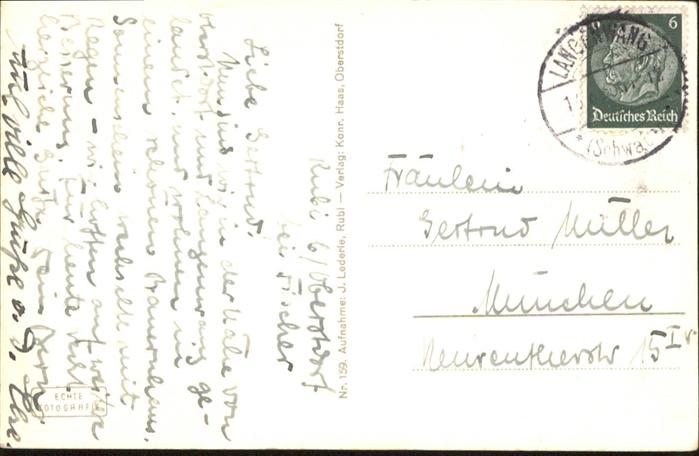 Rubi b/Oberstdorf
bei Fischer
Liebe Gertrud,
Nun sind wir in der Nähe von
Oberstdorf und Langenwang ge-
landet, und wohnen in
einem schönen Bauernhaus.
Sonnenschein wechselt mit
Regen - wir hoffen auf weitere
Besserung. Für heute viele
herzliche Grüße Dein
Auch viele Grüße
ECHTE
FOTOGRAFIE
Nr. 159. Aufnahme: J. Lederle, Rubi — Verlag: Konr. Haas, Oberstdorf
6
Deutsches Reich
LANGENWANG
(Schwab)
Fräulein
Gertrud Müller
München
15 I r